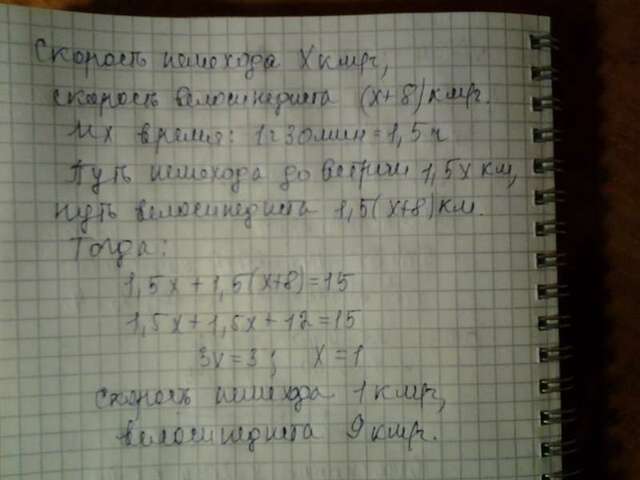 Скорость пешехода X км/ч,
скорость велосипедиста (x+8) км/ч.
Их время: 1ч 30 мин = 1,5 ч
Путь пешехода до встречи 1,5x км,
путь велосипедиста 1,5(x+8) км.
Тогда:
1,5x + 1,5(x+8) = 15
1,5x + 1,5x + 12 = 15
3x = 3 ; x = 1
Скорость пешехода 1 км/ч,
велосипедиста 9 км/ч.